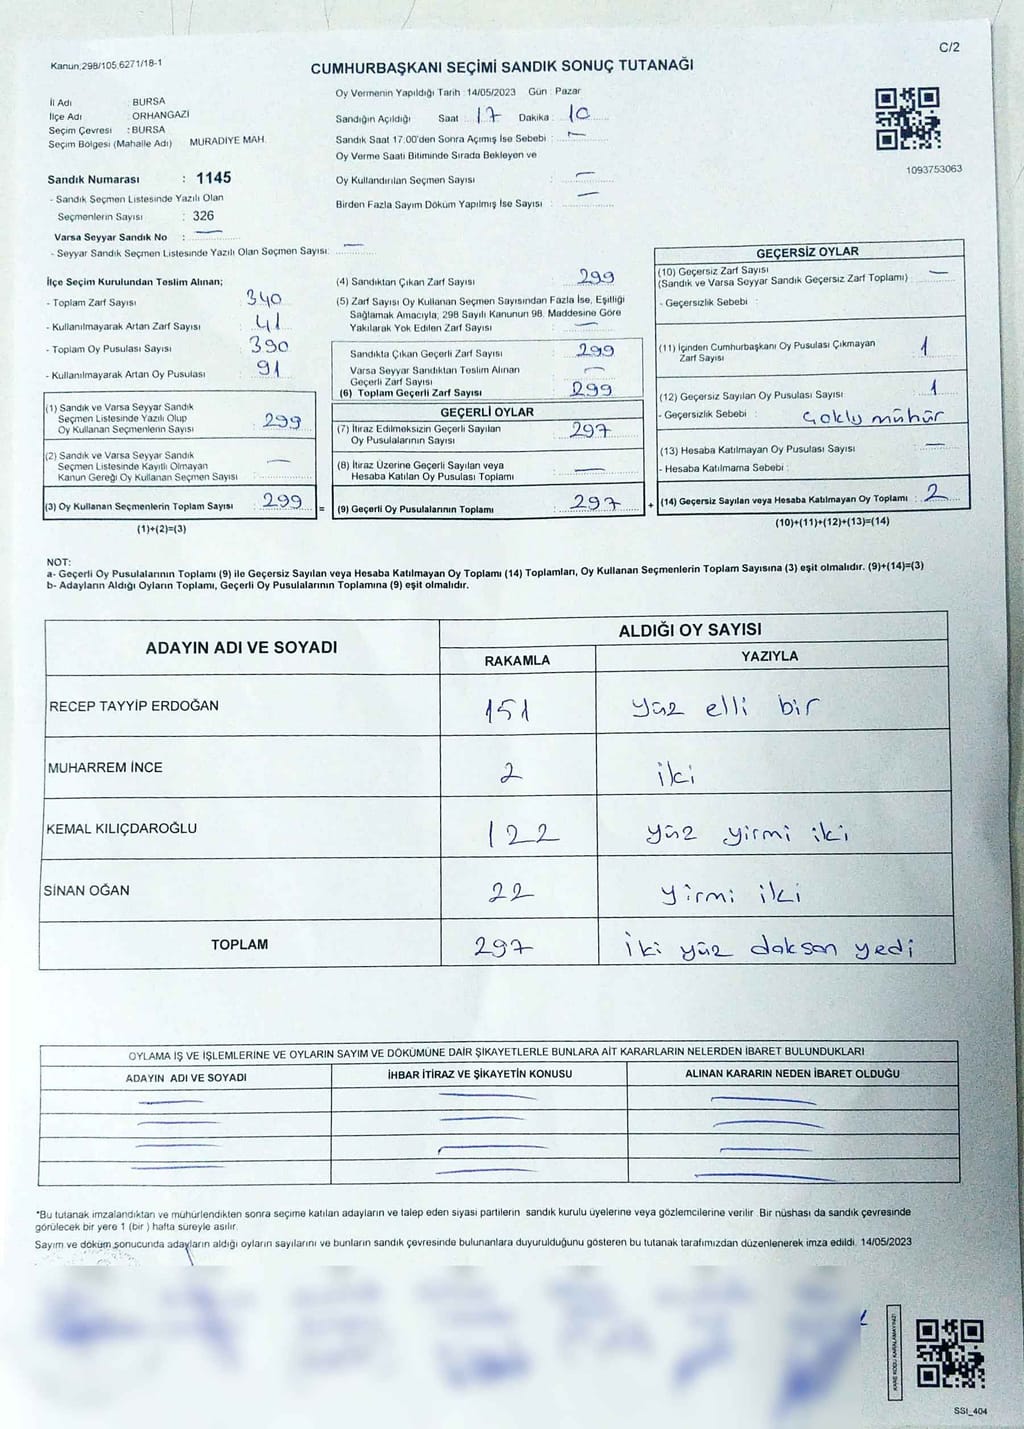 C/2
Kanun:298/105,6271/18-1
CUMHURBAŞKANI SEÇİMİ SANDIK SONUÇ TUTANAĞI
İl Adı : BURSA
İlçe Adı : ORHANGAZİ
Seçim Çevresi : BURSA
Seçim Bölgesi (Mahalle Adı) MURADİYE MAH.
Sandık Numarası : 1145
- Sandık Seçmen Listesinde Yazılı Olan
Seçmenlerin Sayısı : 326
Varsa Seyyar Sandık No : —
- Seyyar Sandık Seçmen Listesinde Yazılı Olan Seçmen Sayısı: —
Oy Vermenin Yapıldığı Tarih :14/05/2023 Gün : Pazar
Sandığın Açıldığı Saat : 17 Dakika : 10
Sandık Saat 17:00'den Sonra Açımış İse Sebebi : —
Oy Verme Saati Bitiminde Sırada Bekleyen ve
Oy Kullandırılan Seçmen Sayısı : —
Birden Fazla Sayım Döküm Yapılmış İse Sayısı : —
1093753063
İlçe Seçim Kurulundan Teslim Alınan;
- Toplam Zarf Sayısı : 340
- Kullanılmayarak Artan Zarf Sayısı : 41
- Toplam Oy Pusulası Sayısı : 390
- Kullanılmayarak Artan Oy Pusulası : 91
(1) Sandık ve Varsa Seyyar Sandık
Seçmen Listesinde Yazılı Olup
Oy Kullanan Seçmenlerin Sayısı : 299
(2) Sandık ve Varsa Seyyar Sandık
Seçmen Listesinde Kayıtlı Olmayan
Kanun Gereği Oy Kullanan Seçmen Sayısı : —
(3) Oy Kullanan Seçmenlerin Toplam Sayısı : 299 =
(1)+(2)=(3)
(4) Sandıktan Çıkan Zarf Sayısı : 299
(5) Zarf Sayısı Oy Kullanan Seçmen Sayısından Fazla İse, Eşitliği
Sağlamak Amacıyla, 298 Sayılı Kanunun 98. Maddesine Göre
Yakılarak Yok Edilen Zarf Sayısı : —
Sandıkta Çıkan Geçerli Zarf Sayısı : 299
Varsa Seyyar Sandıktan Teslim Alınan
Geçerli Zarf Sayısı : —
(6) Toplam Geçerli Zarf Sayısı : 299
GEÇERLİ OYLAR
(7) İtiraz Edilmeksizin Geçerli Sayılan
Oy Pusulalarının Sayısı : 297
(8) İtiraz Üzerine Geçerli Sayılan veya
Hesaba Katılan Oy Pusulası Toplamı : —
(9) Geçerli Oy Pusulalarının Toplamı : 297 +
GEÇERSİZ OYLAR
(10) Geçersiz Zarf Sayısı
(Sandık ve Varsa Seyyar Sandık Geçersiz Zarf Toplamı) : —
- Geçersizlik Sebebi :
(11) İçinden Cumhurbaşkanı Oy Pusulası Çıkmayan
Zarf Sayısı : 1
(12) Geçersiz Sayılan Oy Pusulası Sayısı : 1
- Geçersizlik Sebebi : Çoklu mühür
(13) Hesaba Katılmayan Oy Pusulası Sayısı : —
- Hesaba Katılmama Sebebi :
(14) Geçersiz Sayılan veya Hesaba Katılmayan Oy Toplamı : 2
(10)+(11)+(12)+(13)=(14)
NOT:
a- Geçerli Oy Pusulalarının Toplamı (9) ile Geçersiz Sayılan veya Hesaba Katılmayan Oy Toplamı (14) Toplamları, Oy Kullanan Seçmenlerin Toplam Sayısına (3) eşit olmalıdır. (9)+(14)=(3)
b- Adayların Aldığı Oyların Toplamı, Geçerli Oy Pusulalarının Toplamına (9) eşit olmalıdır.
ADAYIN ADI VE SOYADI
ALDIĞI OY SAYISI
RAKAMLA YAZIYLA
RECEP TAYYİP ERDOĞAN 151 yüz elli bir
MUHARREM İNCE 2 iki
KEMAL KILIÇDAROĞLU 122 yüz yirmi iki
SİNAN OĞAN 22 yirmi iki
TOPLAM 297 iki yüz doksan yedi
OYLAMA İŞ VE İŞLEMLERİNE VE OYLARIN SAYIM VE DÖKÜMÜNE DAİR ŞİKAYETLERLE BUNLARA AİT KARARLARIN NELERDEN İBARET BULUNDUKLARI
ADAYIN ADI VE SOYADI İHBAR İTİRAZ VE ŞİKAYETİN KONUSU ALINAN KARARIN NEDEN İBARET OLDUĞU
*Bu tutanak imzalandıktan ve mühürlendikten sonra seçime katılan adayların ve talep eden siyasi partilerin sandık kurulu üyelerine veya gözlemcilerine verilir. Bir nüshası da sandık çevresinde
görülecek bir yere 1 (bir ) hafta süreyle asılır.
Sayım ve döküm sonucunda adayların aldığı oyların sayılarını ve bunların sandık çevresinde bulunanlara duyurulduğunu gösteren bu tutanak tarafımızdan düzenlenerek imza edildi. 14/05/2023
KARE KODU KARALAMAYINIZ!
SSI_404